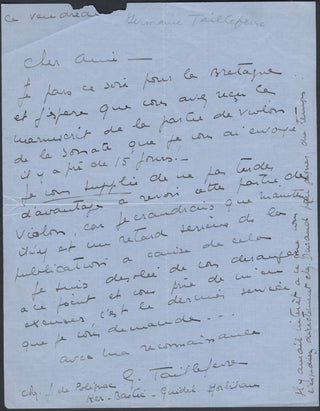 ce vendredi
Germaine Tailleferre
Cher Ami —
Je pars ce soir pour la Bretagne
et j'espère que vous avez reçu le
manuscrit de la partie de violon
de la Sonate que je vous ai envoyé
il y a près de 15 jours. —
Je vous supplie de ne pas tarder
d'avantage à revoir cette partie de
violon, car je craindrais que
il n'y eut un retard sérieux de la
publication à cause de cela
Je suis désolée de vous déranger
à ce point et vous prie de m'en
excuser c'est le dernier service
que je vous demande . . .
avec ma reconnaissance
G. Tailleferre
chez J de Polignac
Ker-Bastic Guidel Morbihan